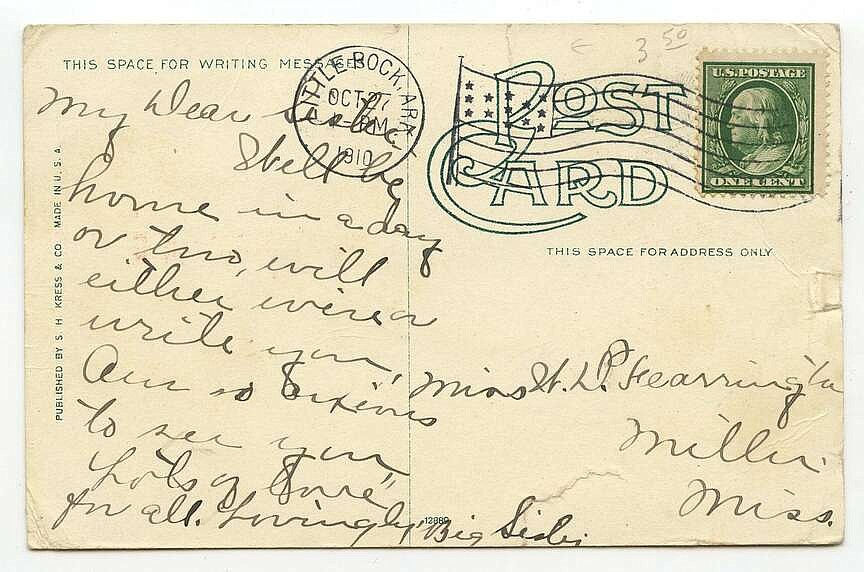 THIS SPACE FOR WRITING MESSAGES
My Dear sister
Shall be
home in a day
or two, will
either wire or
write you,
Am so anxious
to see you
"Lots of Love"
for all. Lovingly Big Sister
PUBLISHED BY S. H. KRESS & CO. MADE IN U. S. A.
LITTLE ROCK, ARK.
OCT 27
PM
1910
3 50
POST
CARD
U.S. POSTAGE
ONE CENT
THIS SPACE FOR ADDRESS ONLY
Miss W. P. Fearrington
Miller
Miss.
12889